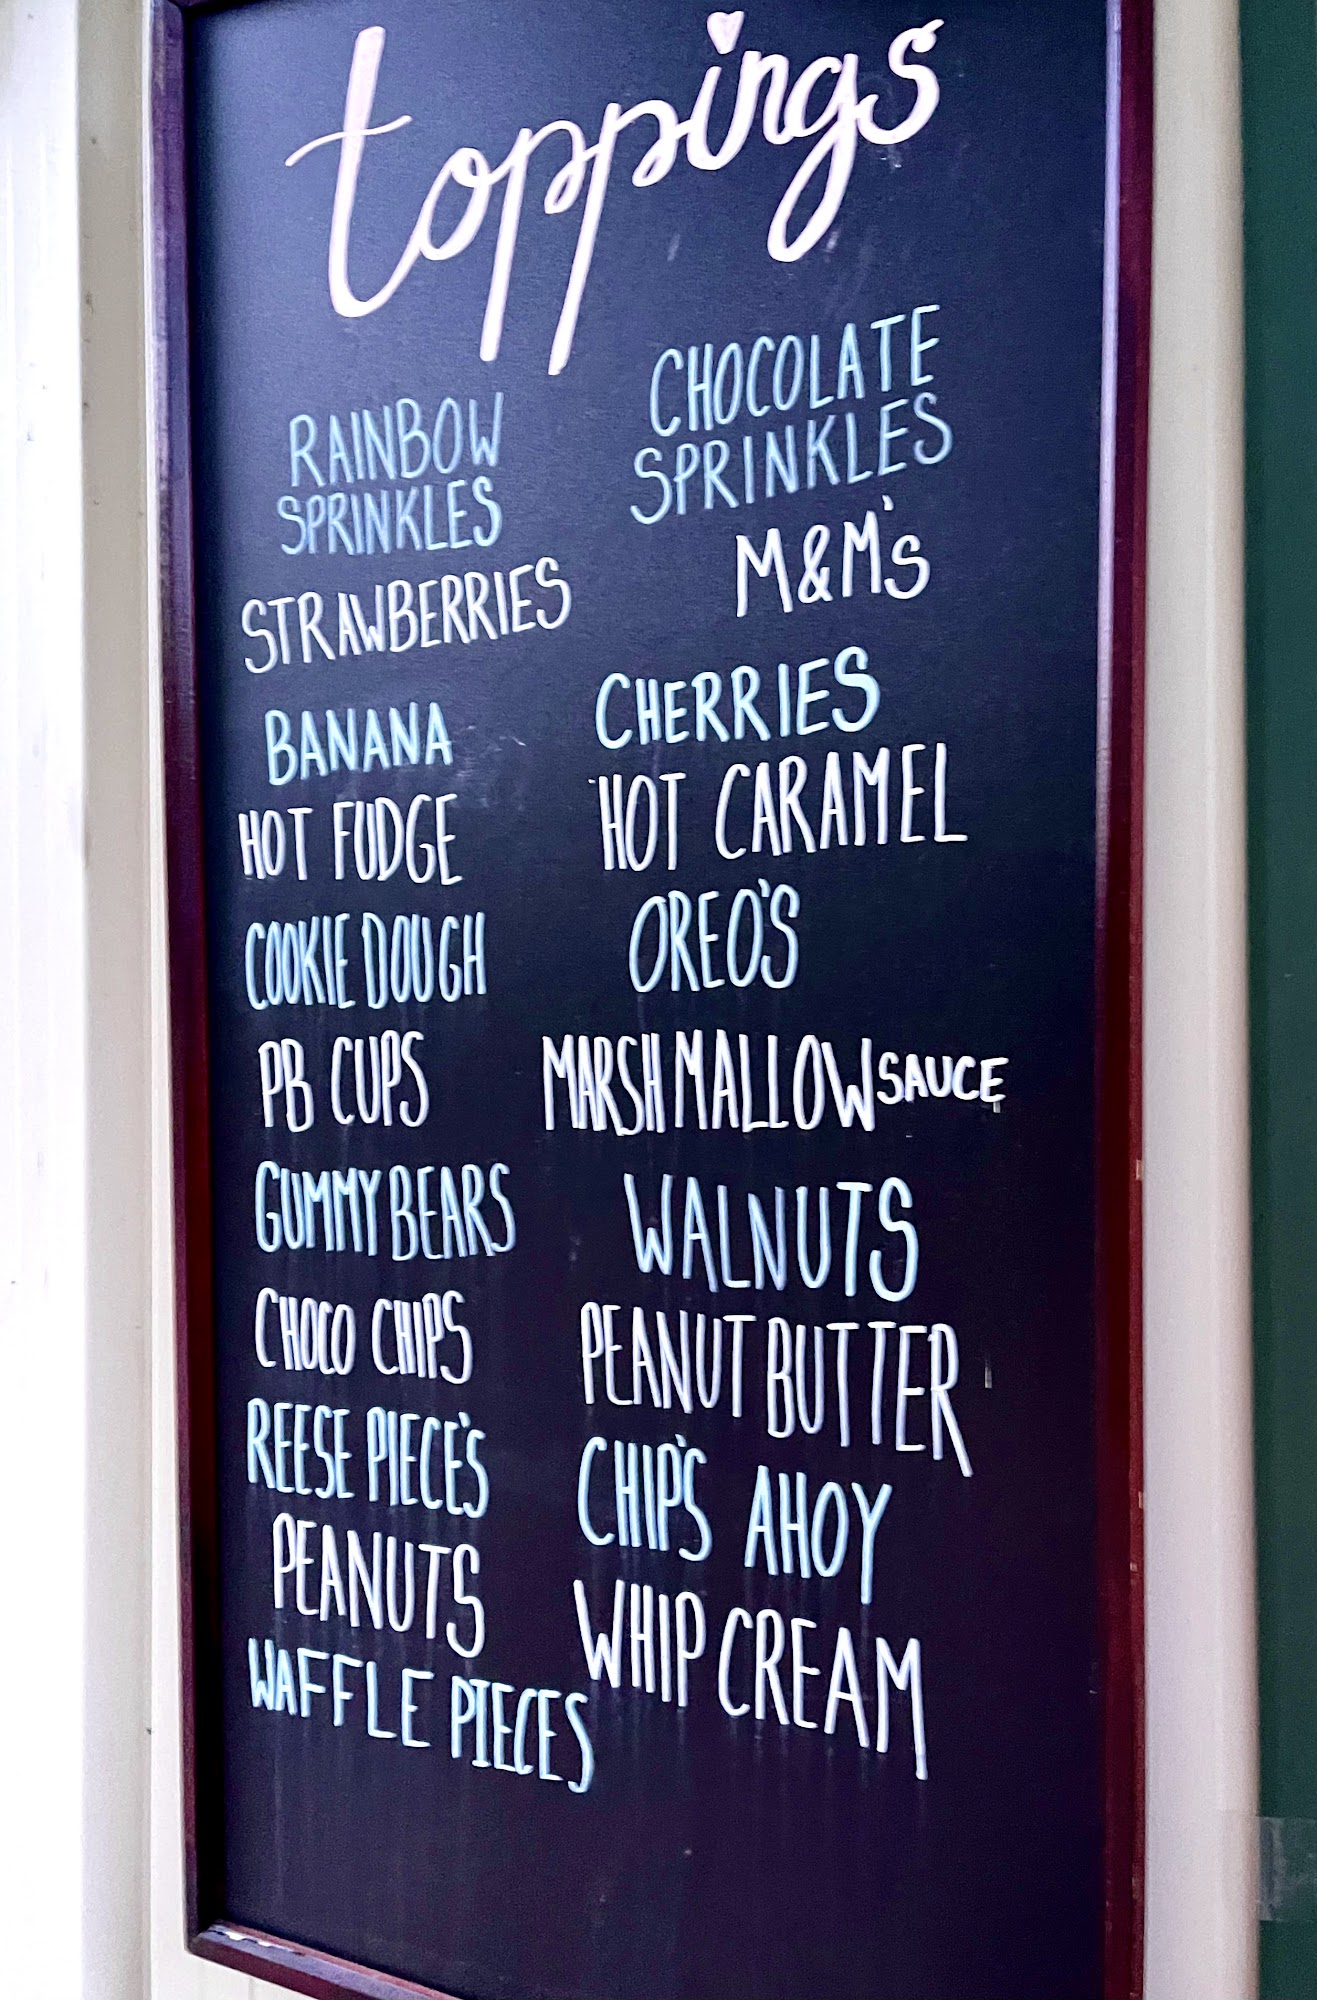 toppings
RAINBOW
SPRINKLES
STRAWBERRIES
BANANA
HOT FUDGE
COOKIE DOUGH
PB CUPS
GUMMY BEARS
CHOCO CHIPS
REESE PIECE'S
PEANUTS
WAFFLE PIECES
CHOCOLATE
SPRINKLES
M&M's
CHERRIES
HOT CARAMEL
OREO'S
MARSHMALLOW SAUCE
WALNUTS
PEANUT BUTTER
CHIP'S AHOY
WHIP CREAM